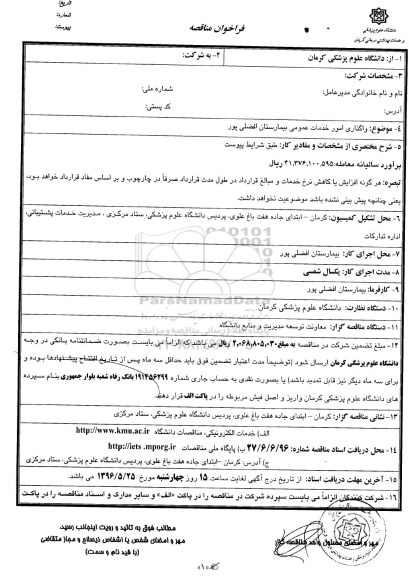 تاریخ:
شماره:
پیوست:
فراخوان مناقصه
دانشگاه علوم پزشکی
و خدمات بهداشتی درمانی کرمان
۱- از: دانشگاه علوم پزشکی کرمان
۲- به شرکت:
۳- مشخصات شرکت:
نام و نام خانوادگی مدیرعامل:
شماره ملی:
آدرس:
کد پستی:
۴- موضوع: واگذاری امور خدمات عمومی بیمارستان افضلی پور
۵- شرح مختصری از مشخصات و مقادیر کار: طبق شرایط پیوست
برآورد سالیانه معامله: ۴۱،۳۷۶،۱۰۰،۵۹۵ ریال
تبصره: هر گونه افزایش یا کاهش نرخ خدمات و مبالغ قرارداد در طول مدت قرارداد صرفاً در چارچوب و بر اساس مفاد قرارداد خواهد بود.
یعنی چنانچه پیش بینی نشده باشد موضوعیت نخواهد داشت.
۶- محل تشکیل کمیسیون: کرمان – ابتدای جاده هفت باغ علوی، پردیس دانشگاه علوم پزشکی، ستاد مرکزی ، مدیریت خدمات پشتیبانی،
اداره تدارکات
۷- محل اجرای کار: بیمارستان افضلی پور
۸- مدت اجرای کار: یکسال شمسی
۹- کارفرما: بیمارستان افضلی پور
۱۰- دستگاه نظارت: دانشگاه علوم پزشکی کرمان
۱۱- دستگاه مناقصه گزار: معاونت توسعه مدیریت و منابع دانشگاه
۱۲- مبلغ تضمین شرکت در مناقصه به مبلغ ۲،۰۶۸،۸۰۵،۰۳۰ ریال می باشد که الزاماً می بایست بصورت ضمانتنامه بانکی در وجه
دانشگاه علوم پزشکی کرمان ارسال شود (توضیحاً مدت اعتبار تضمین فوق باید حداقل سه ماه پس از تاریخ افتتاح پیشنهادها بوده و
برای سه ماه دیگر نیز قابل تمدید باشد) یا بصورت نقدی به حساب جاری شماره ۱۹۱۴۵۶۲۹۹ بانک رفاه شعبه بلوار جمهوری بنام سپرده
های دانشگاه علوم پزشکی کرمان واریز و اصل فیش مربوطه را در پاکت الف قرار دهند.
۱۳- نشانی مناقصه گزار: کرمان – ابتدای جاده هفت باغ علوی، پردیس دانشگاه علوم پزشکی، ستاد مرکزی
الف) خدمات الکترونیکی، مناقصات دانشگاه http://www.kmu.ac.ir
۱۴- محل دریافت اسناد مناقصه شماره: ۲۷/۶/۶/۹۶ ب) پایگاه ملی مناقصات http://iets.mporg.ir
ج) آدرس: کرمان –ابتدای جاده هفت باغ علوی، پردیس دانشگاه علوم پزشکی، ستاد مرکزی
۱۵- آخرین مهلت دریافت اسناد: از تاریخ درج آگهی لغایت ساعت ۱۵ روز چهارشنبه مورخ ۱۳۹۶/۵/۲۵ می باشد.
۱۶- شرکت کنندگان الزاماً می بایست سپرده شرکت در مناقصه را در پاکت «الف» و سایر مدارک و اسناد مناقصه را در پاکت
مطالب فوق به تائید و رویت اینجانب رسید.
مهر و امضای شخص یا اشخاص ذیصلاح و مجاز متقاضی
(با قید نام و سمت)
مهر و امضای مسئول واحد مناقصه گزار
ParsNamadData